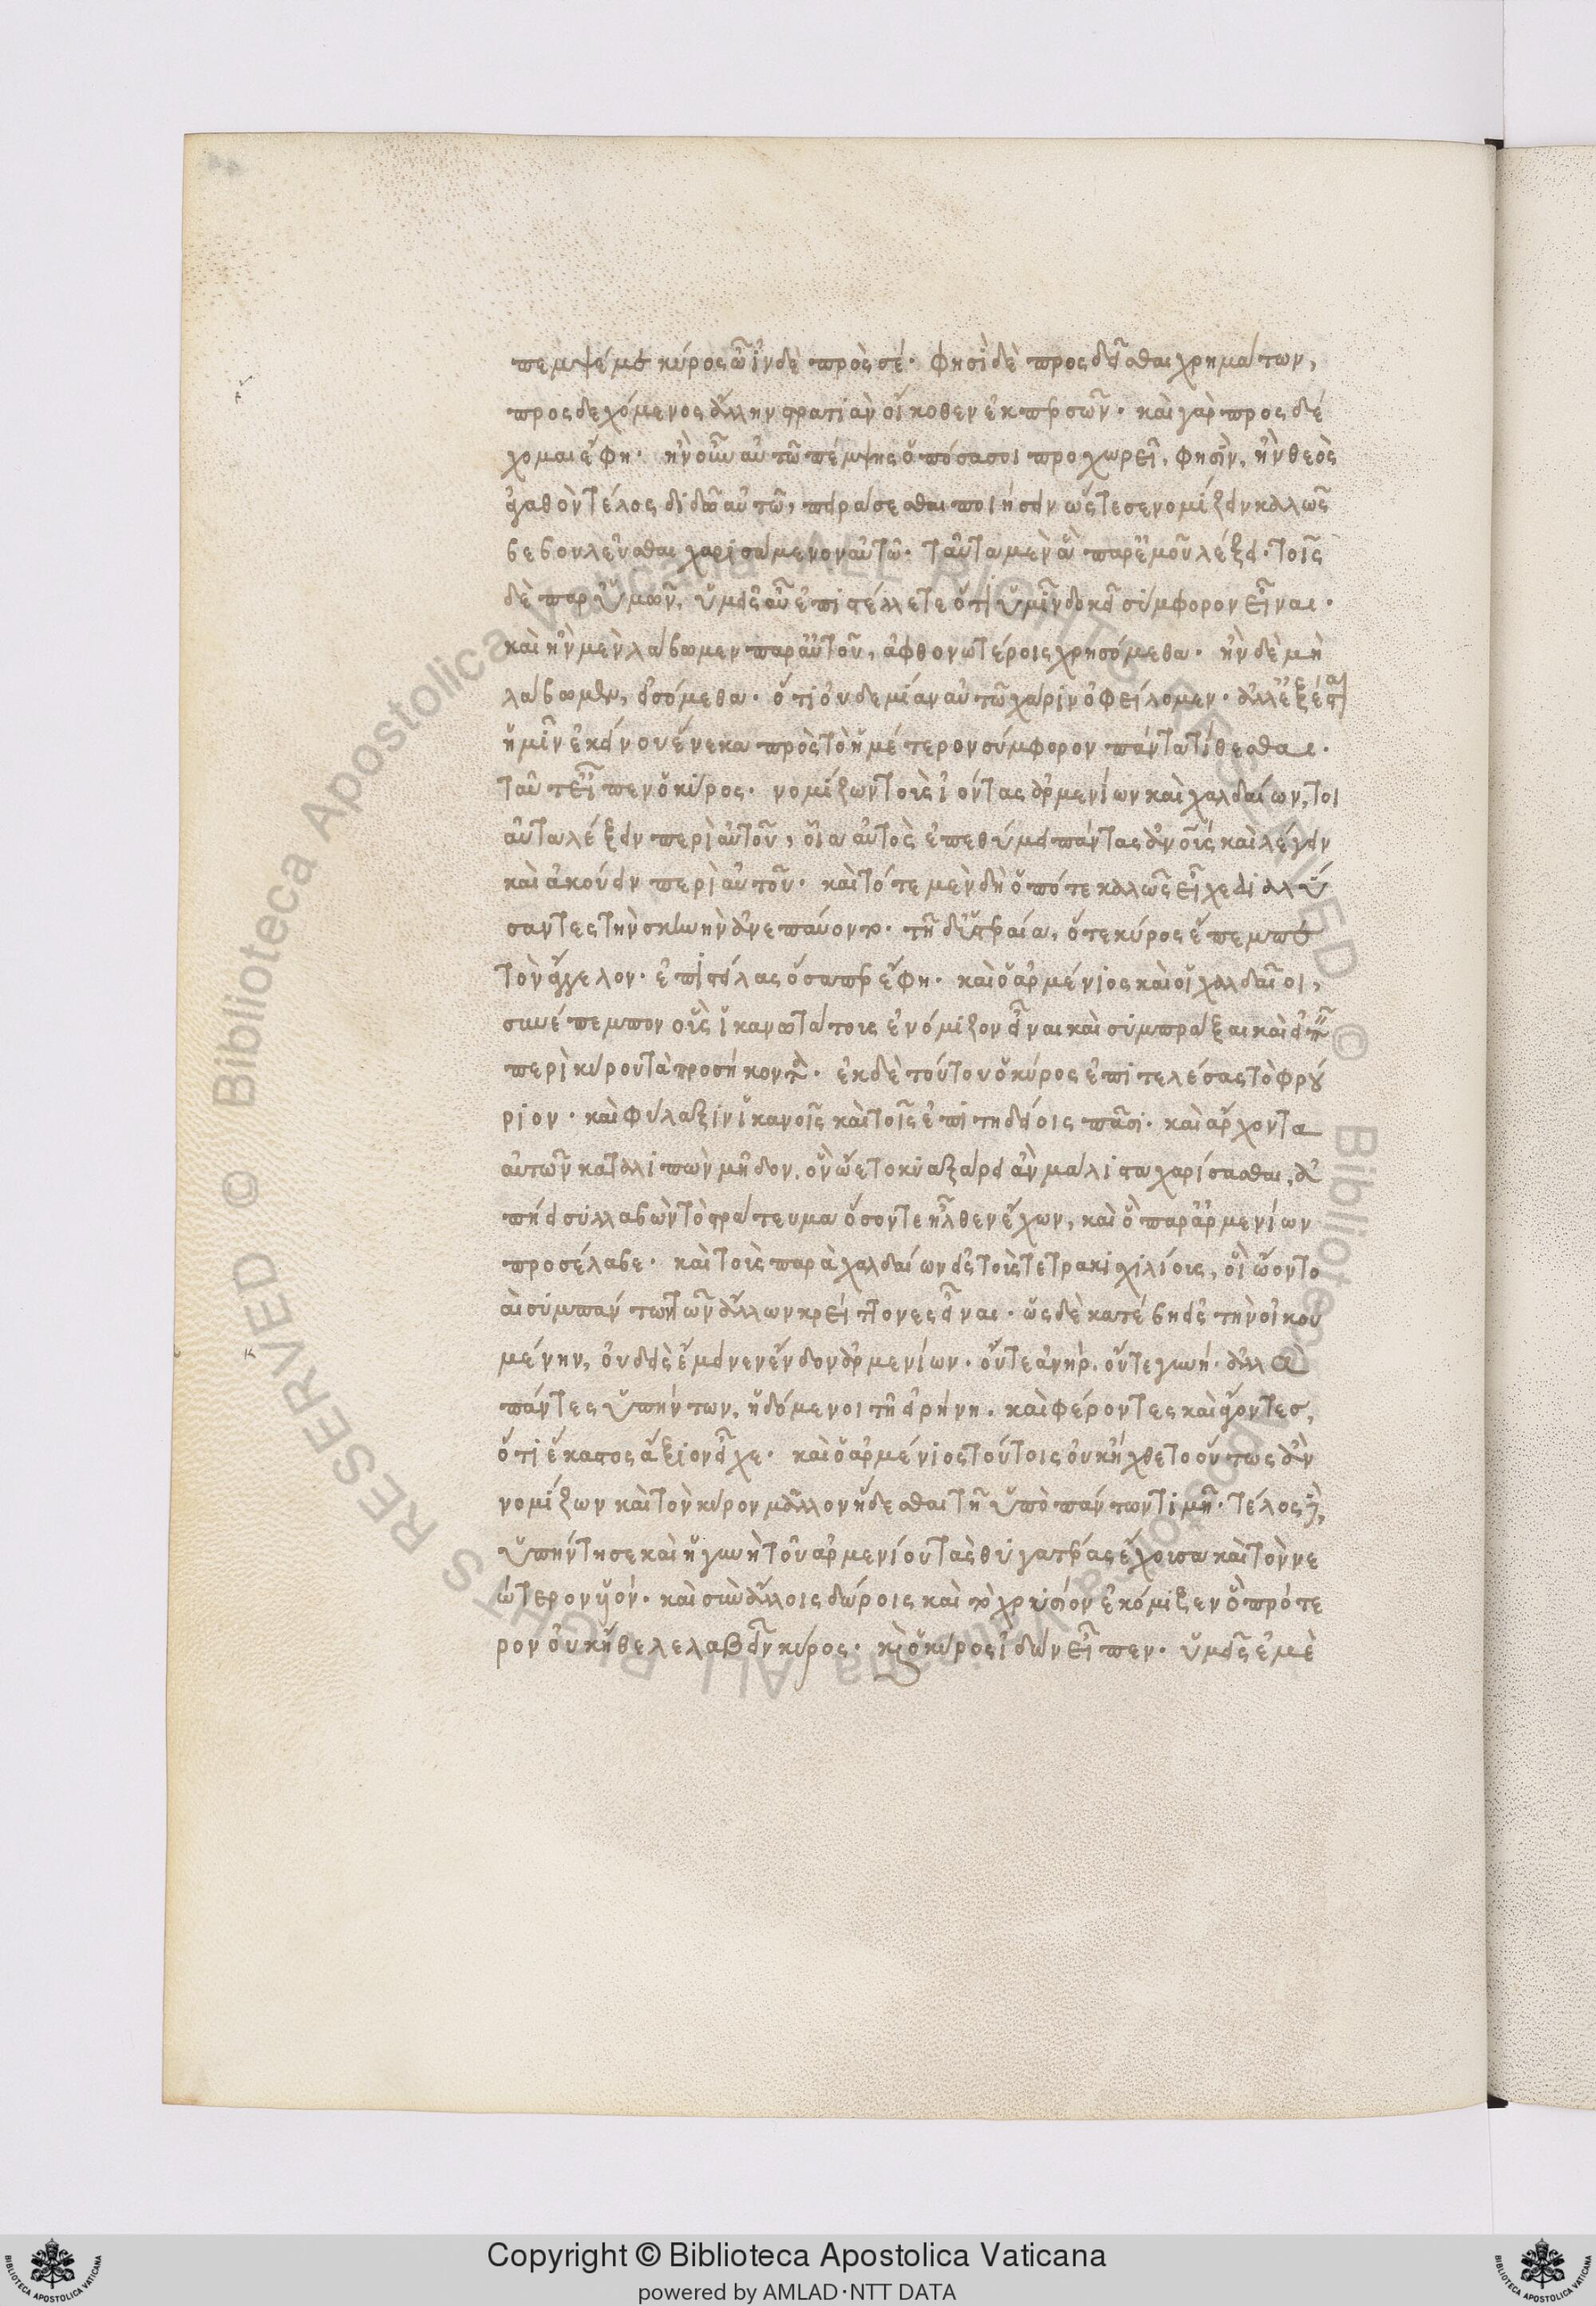 πεμψέ με κύρος ὦ ἰνδὲ πρὸς σέ· φησὶ δὲ προσδεῖσθαι χρημάτων,
προσδεχόμενος ἄλλην στρατιὰν οἴκοθεν ἐκ περσῶν· καὶ γὰρ προσδέ
χομαι ἔφη· ἢν οὖν αὐτῶ πέμψης ὁπόσα σοι προχωρεῖ, φησὶν, ἢν θεὸς
ἀγαθὸν τέλος διδῶ αὐτῶ, πειράσεσθαι ποιήσειν ὥστε σε νομίζειν καλῶς
βεβουλεῦσθαι χαρισάμενον αὐτῶ· ταῦτα μὲν ὁ παρ' ἐμοῦ λέξει· τοῖς
δὲ παρ' ὑμῶν, ὑμεῖς αὖ ἐπιστέλλετε ὅτι ὑμῖν δοκεῖ σύμφορον εἶναι·
καὶ ἢν μὲν λάβωμεν παρ' αὐτοῦ, ἀφθονωτέροις χρησόμεθα· ἢν δὲ μὴ
λάβωμεν, εἰσόμεθα· ὅτι οὐδεμίαν αὐτῶ χάριν ὀφείλομεν· ἀλλ' ἐξέσται
ἡμῖν ἐκείνου ἕνεκα πρὸς τὸ ἡμέτερον σύμφορον πάντα τίθεσθαι·
ταῦτ' εἶπεν ὁ κύρος· νομίζων τοὺς ἰόντας ἀρμενίων καὶ χαλδαίων, τοι
αῦτα λέξειν περὶ αὐτοῦ, οἷα αὐτὸς ἐπεθύμει πάντας ἀνοῖς καὶ λέγειν
καὶ ἀκούειν περὶ αὐτοῦ· καὶ τότε μὲν δὴ ὁπότε καλῶς εἶχε διαλύ
σαντες τὴν σκηνὴν ἀνεπαύοντο· τῆ δ' ὑστεραία, ὅ τε κύρος ἔπεμπε
τὸν ἄγγελον· ἐπιστείλας ὅσαπερ ἔφη· καὶ ὁ ἀρμένιος καὶ οἱ χαλδαῖοι,
συνέπεμπον οὓς ἱκανωτάτους ἐνόμιζον εἶναι καὶ συμπρᾶξαι καὶ εἰπεῖν
περὶ κύρου τὰ προσήκοντα· ἐκ δὲ τούτου ὁ κύρος ἐπιτελέσας τὸ φρού
ριον· καὶ φύλαξιν ἱκανοῖς καὶ τοῖς ἐπιτηδείοις πᾶσι· καὶ ἄρχοντα
αὐτῶν καταλιπὼν μῆδον, ὃν ὤετο κυαξάρει ἂν μάλιστα χαρίσασθαι, ἀ
πήει συλλαβὼν τὸ στράτευμα ὅσον τε ἦλθεν ἔχων, καὶ ὃ παρ' ἀρμενίων
προσέλαβε· καὶ τοὺς παρὰ χαλδαίων εἰς τοὺς τετρακισχιλίους, οἳ ὤοντο
αὶ σύμπάντων τῶν ἄλλων κρείττονες εἶναι· ὡς δὲ κατέβη εἰς τὴν οἰκου
μένην, οὐδεὶς ἔμεινεν ἔνδον ἀρμενίων· οὔτε ἀνὴρ, οὔτε γυνή· ἀλλὰ
πάντες ὑπήντων, ἡδόμενοι τῆ εἰρήνη· καὶ φέροντες καὶ ἄγοντες,
ὅτι ἕκαστος ἄξιον εἶχε· καὶ ὁ ἀρμένιος τούτοις οὐκ ἤχθετο οὕτως ἂν
νομίζων καὶ τὸν κύρον μᾶλλον ἥδεσθαι τῆ ὑπὸ πάντων τιμῆ· τέλος δὲ,
ὑπήντησε καὶ ἡ γυνὴ τοῦ ἀρμενίου τὰς θυγατέρας ἔχουσα καὶ τὸν νε
ώτερον υἱόν· καὶ σὺν ἄλλοις δώροις καὶ τὸ χρυσίον ἐκόμιζεν ὃ πρότε
ρον οὐκ ἤθελε λαβεῖν κύρος· καὶ ὁ κύρος ἰδὼν εἶπεν· ὑμεῖς ἐμὲ
Copyright © Biblioteca Apostolica Vaticana
powered by AMLAD·NTT DATA